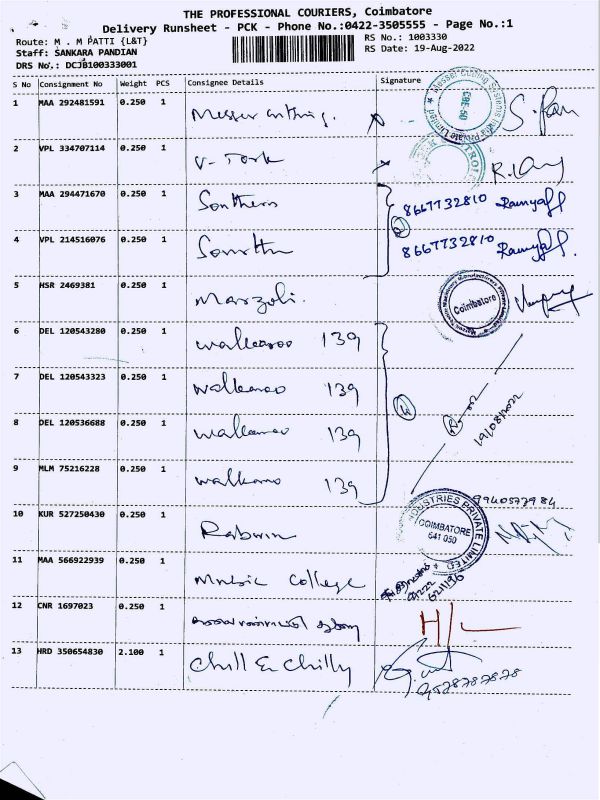 THE PROFESSIONAL COURIERS, Coimbatore
Delivery Runsheet - PCK - Phone No.:0422-3505555 - Page No.:1
Route: M . M PATTI {L&T}
RS No.: 1003330
Staff: SANKARA PANDIAN
RS Date: 19-Aug-2022
DRS No.: DCJB100333001
S No Consignment No Weight PCS Consignee Details Signature
1 MAA 292481591 0.250 1 Messer Cutting.
2 VPL 334707114 0.250 1 V-Tork
3 MAA 294471670 0.250 1 Southern 8667732810 Ramya
4 VPL 214516076 0.250 1 8667732810 Ramya
5 HSR 2469381 0.250 1 Marzoli. Coimbatore
6 DEL 120543280 0.250 1 Walkaroo 139
7 DEL 120543323 0.250 1 Walkaroo 139
8 DEL 120536688 0.250 1 Walkaroo 139 19/08/2022
9 MLM 75216228 0.250 1 Walkaroo 139
9940577984
10 KUR 527250430 0.250 1 INDUSTRIES PRIVATE LIMITED COIMBATORE 641 050
11 MAA 566922939 0.250 1 Music College
12 CNR 1697023 0.250 1 H/L
13 HRD 350654830 2.100 1 Chill & Chilly
9578787878